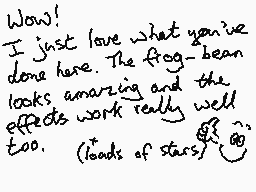 Wow!
I just love what you've
done here. The frog-bean
looks amazing and the
effects work really well
too. (+loads of stars)